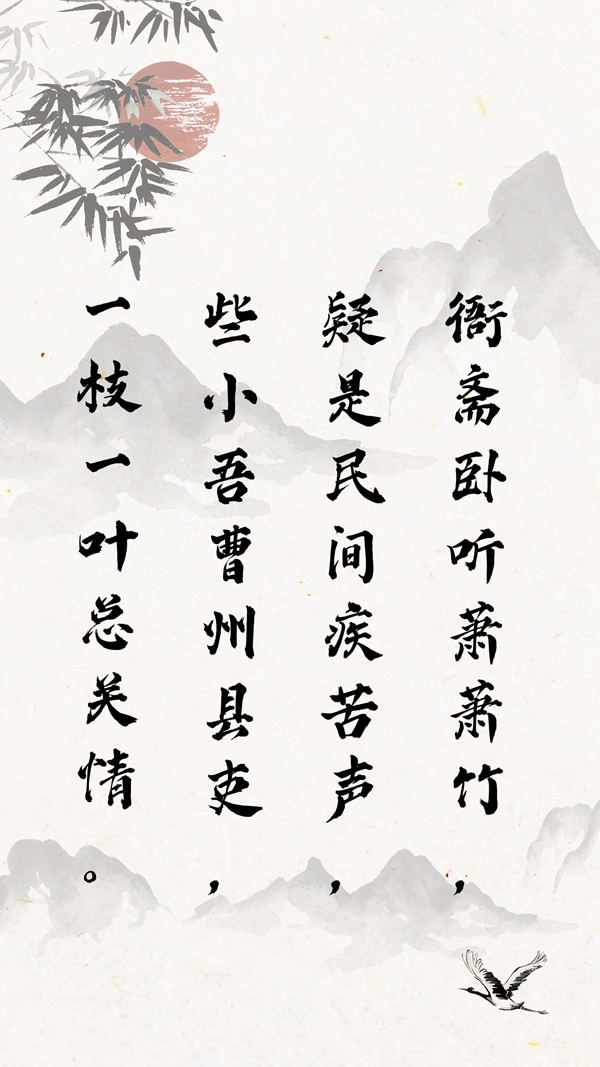 衙斋卧听萧萧竹，
疑是民间疾苦声，
些小吾曹州县吏，
一枝一叶总关情。